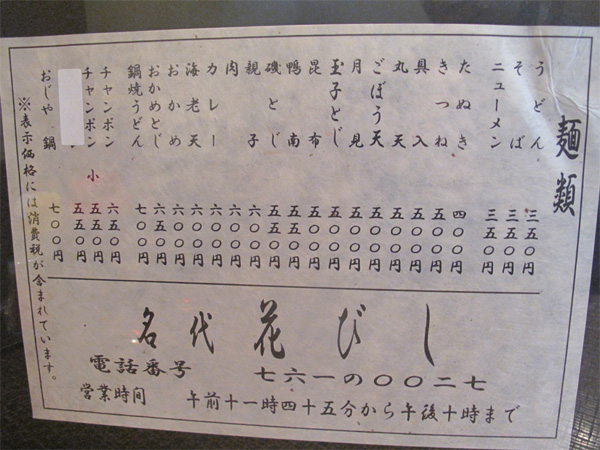 麺類
うどん 三五〇円
そば 三五〇円
ニューメン 三五〇円
たぬき 四〇〇円
きつね 五〇〇円
具入 五〇〇円
丸天 五〇〇円
ごぼう天 五〇〇円
月見 五〇〇円
玉子とじ 五〇〇円
昆布 五〇〇円
鴨南 五五〇円
磯とじ 五五〇円
親子 六〇〇円
肉 六〇〇円
カレー 六〇〇円
海老天 六〇〇円
おかめ 六〇〇円
おかめとじ 六五〇円
鍋焼うどん 七〇〇円
チャンポン 六五〇円
チャンポン 小 五五〇円
五五〇円
おじや鍋 七〇〇円
※表示価格には消費税が含まれています。
名代 花びし
電話番号 七六一の〇〇二七
営業時間 午前十一時四十五分から午後十時まで